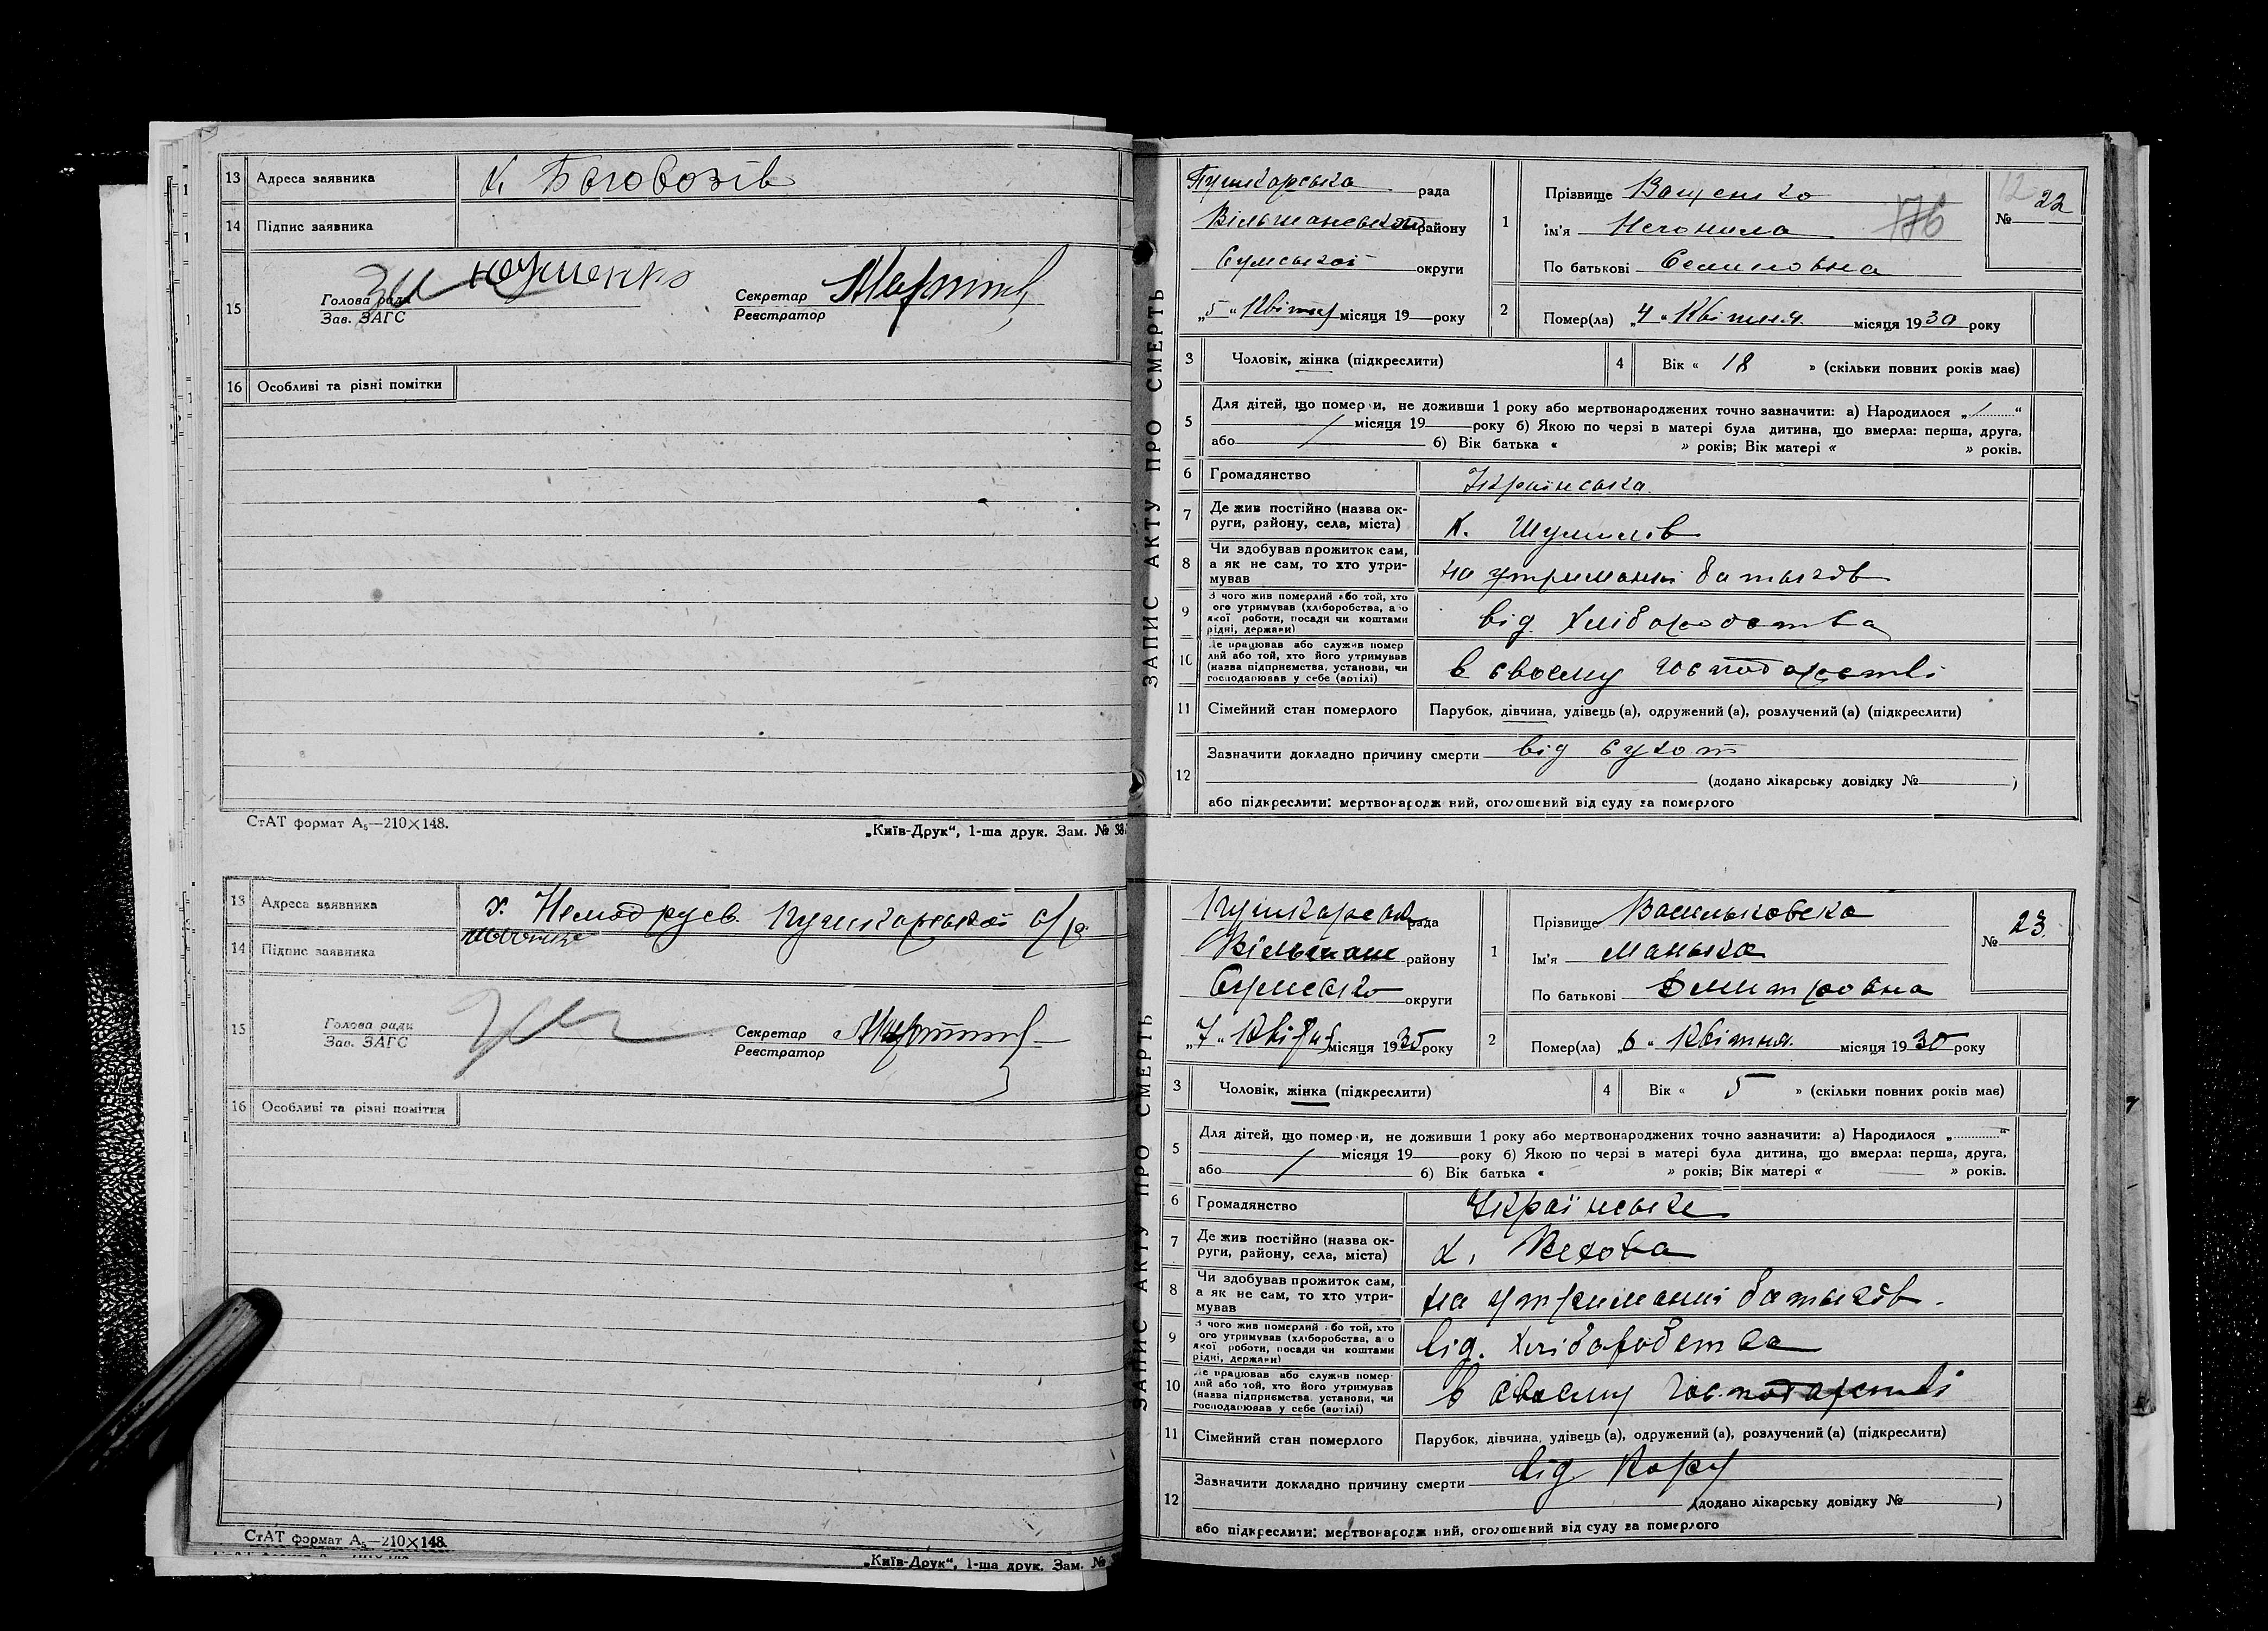 13 Адреса заявника х. Боговозів
14 Підпис заявника
15 Голова ради Зав. ЗАГС Секретар Реєстратор
16 Особливі та різні помітки
СтАТ формат А₅—210×148. „Київ-Друк“, 1-ша друк. Зам. № 38
13 Адреса заявника х. Пушкарської с/р.
14 Підпис заявника
15 Голова ради Зав. ЗАГС Секретар Реєстратор
16 Особливі та різні помітки
СтАТ формат А₅—210×148.
„Київ-Друк“, 1-ша друк. Зам. №
ЗАПИС АКТУ ПРО СМЕРТЬ
Пушкарська рада
Вільшанського району
Сумської округи
„5“ Квітня місяця 19 року
1 Прізвище Ващенко
ім'я
По батькові Семеновна
176
12
№ 22
2 Помер(ла) „4“ Квітня місяця 1930 року
3 Чоловік, жінка (підкреслити) 4 Вік « 18 » (скільки повних років має)
5 Для дітей, що померли, не доживши 1 року або мертвонароджених точно зазначити: а) Народилося „ “
місяця 19 року б) Якою по черзі в матері була дитина, що вмерла: перша, друга,
або б) Вік батька « » років; Вік матері « » років.
6 Громадянство Українська
7 Де жив постійно (назва округи, району, села, міста) х. Шумилів
8 Чи здобував прожиток сам, а як не сам, то хто утримував на утриманні батьків
9 З чого жив померлий або той, хто його утримував (хліборобства, або якої роботи, посади чи коштами рідні, держави) від хліборобства
10 Де працював або служив померлий або той, хто його утримував (назва підприємства, установи, чи господарював у себе (артілі) в своєму господарстві
11 Сімейний стан померлого Парубок, дівчина, удівець (а), одружений (а), розлучений (а) (підкреслити)
12 Зазначити докладно причину смерти від сухот
(додано лікарську довідку № )
або підкреслити: мертвонароджений, оголошений від суду за померлого
ЗАПИС АКТУ ПРО СМЕРТЬ
Пушкарська рада
Вільшанс району
Сумсько округи
„7“ Квітня місяця 1930 року
1 Прізвище Васильковска
Ім'я Манька
По батькові Дмитровна
№ 23
2 Помер(ла) „6“ Квітня місяця 1930 року
3 Чоловік, жінка (підкреслити) 4 Вік « 5 » (скільки повних років має)
5 Для дітей, що померли, не доживши 1 року або мертвонароджених точно зазначити: а) Народилося „ “
місяця 19 року б) Якою по черзі в матері була дитина, що вмерла: перша, друга,
або б) Вік батька « » років; Вік матері « » років.
6 Громадянство Українське
7 Де жив постійно (назва округи, району, села, міста) х.
8 Чи здобував прожиток сам, а як не сам, то хто утримував на утриманні батьків.
9 З чого жив померлий або той, хто його утримував (хліборобства, або якої роботи, посади чи коштами рідні, держави) від. хліборобства
10 Де працював або служив померлий або той, хто його утримував (назва підприємства, установи, чи господарював у себе (артілі) в своєму господарстві
11 Сімейний стан померлого Парубок, дівчина, удівець (а), одружений (а), розлучений (а) (підкреслити)
12 Зазначити докладно причину смерти від Кору
(додано лікарську довідку № )
або підкреслити: мертвонароджений, оголошений від суду за померлого